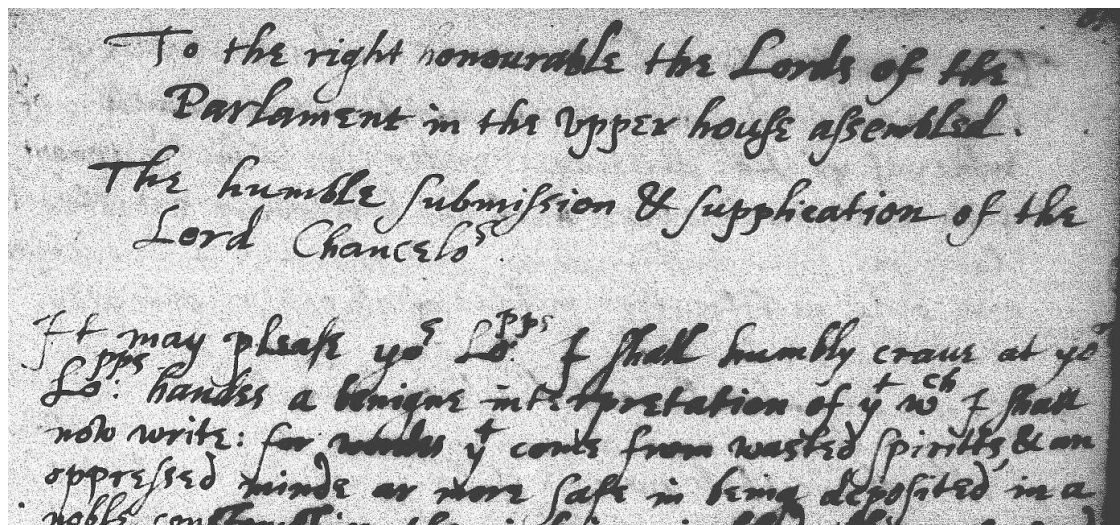 To the right honourable the Lords of the
Parlament in the Vpper house assembled.
The humble submission & supplication of the
Lord Chancelor.
It may please yor Lo:pps I shall humbly craue at yor
Lo:pps handes a benigne interpretation of yt wch I shall
now write: for wordes yt come from wasted spiritts & an
oppressed minde ar more safe in being deposited in a
noble